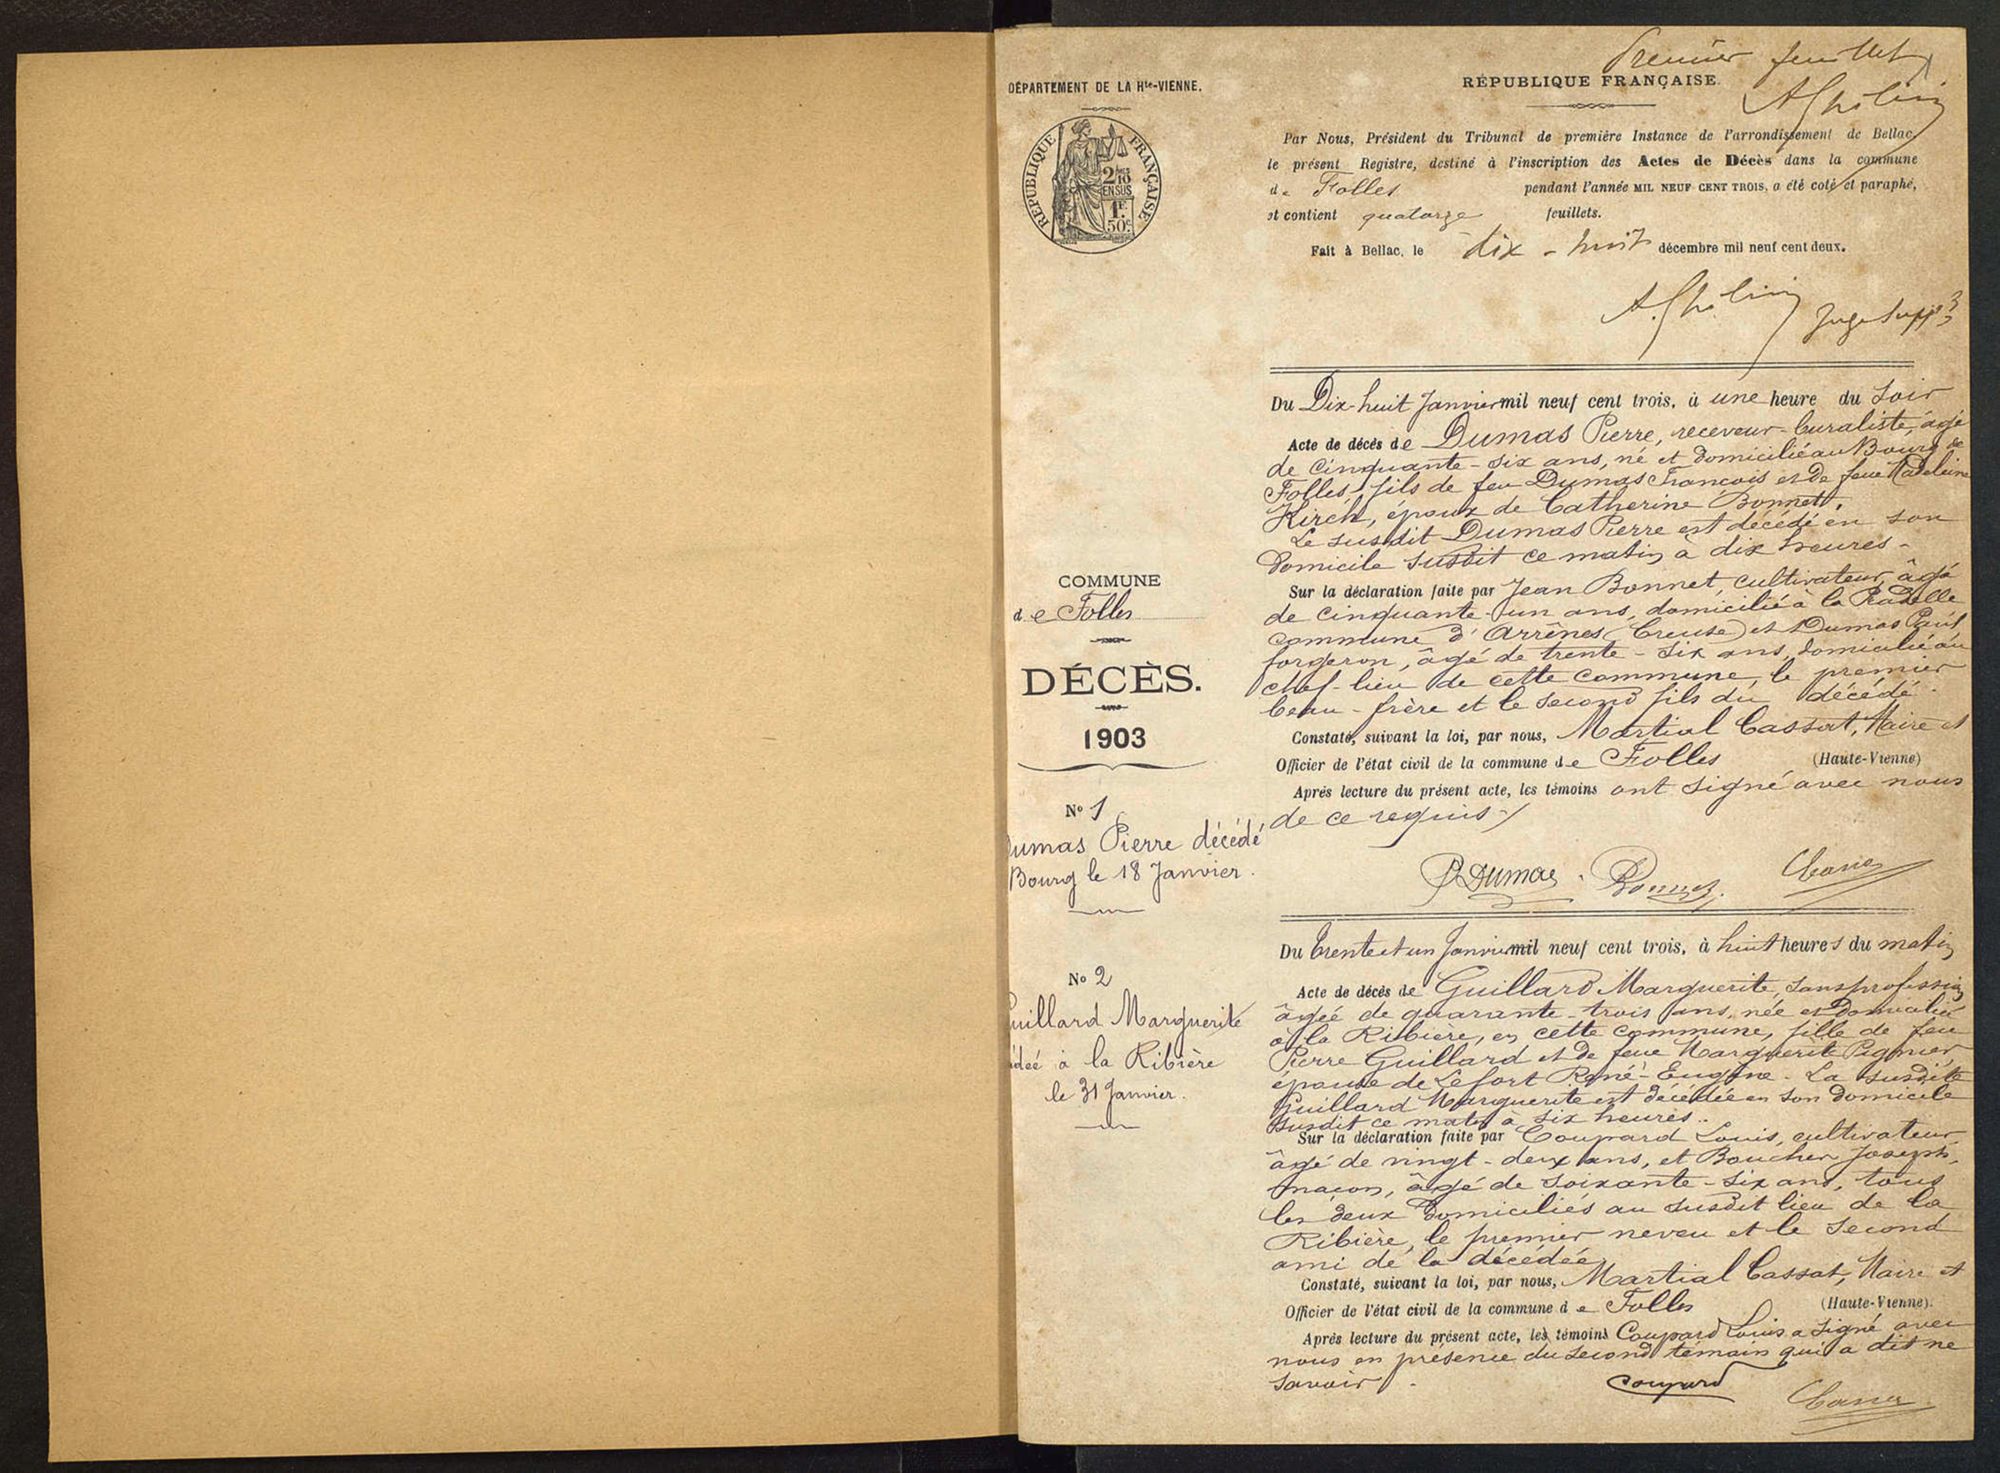 Premier feuillet
DÉPARTEMENT DE LA Hte-VIENNE.
RÉPUBLIQUE FRANÇAISE.
RÉPUBLIQUE FRANÇAISE
2/10 EN SUS
1F. 50c.
Par Nous, Président du Tribunal de première Instance de l'arrondissement de Bellac,
le présent Registre, destiné à l'inscription des Actes de Décès dans la commune
de Folles pendant l'année MIL NEUF CENT TROIS, a été coté et paraphé,
et contient quatorze feuillets.
Fait à Bellac, le dix-huit décembre mil neuf cent deux.
Juge Supp
COMMUNE
de Folles
DÉCÈS.
1903
No 1
Dumas Pierre décédé
Bourg le 18 Janvier.
Du Dix-huit Janvier mil neuf cent trois, à une heure du soir
Acte de décès de Dumas Pierre, receveur-buraliste, âgé
de cinquante-six ans, né et domicilié au Bourg de
Folles, fils de feu Dumas François et de feue Madeleine
Kirch, époux de Catherine Bonnet.
Le susdit Dumas Pierre est décédé en son
domicile susdit ce matin à dix heures.
Sur la déclaration faite par Jean Bonnet, cultivateur, âgé
de cinquante-un ans, domicilié à la Pradelle
commune d'Arrênes (Creuse) et Dumas Paul
forgeron, âgé de trente-six ans, domicilié au
chef-lieu de cette commune, le premier
beau-frère et le second fils du décédé.
Constaté, suivant la loi, par nous, Martial Cassat, Maire et
Officier de l'état civil de la commune de Folles (Haute-Vienne)
Après lecture du présent acte, les témoins ont signé avec nous
de ce requis.
P Dumas Bonnet
No 2
Guillard Marguerite
décédée à la Ribière
le 31 Janvier.
Du trente et un Janvier mil neuf cent trois, à huit heures du matin
Acte de décès de Guillard Marguerite, sans profession
âgée de quarante-trois ans, née et domiciliée
à la Ribière, en cette commune, fille de feu
Pierre Guillard et de feue Marguerite Pignier
épouse de Lefort René-Eugène. La susdite
Guillard Marguerite est décédée en son domicile
susdit ce matin à six heures.
Sur la déclaration faite par Coupard Louis, cultivateur,
âgé de vingt-deux ans, et Boucher Joseph,
maçon, âgé de soixante-six ans, tous
les deux domiciliés au susdit lieu de la
Ribière, le premier neveu et le second
ami de la décédée
Constaté, suivant la loi, par nous, Martial Cassat, Maire et
Officier de l'état civil de la commune de Folles (Haute-Vienne).
Après lecture du présent acte, les témoins Coupard Louis a signé avec
nous en présence du second témoin qui a dit ne
savoir.
Coupard